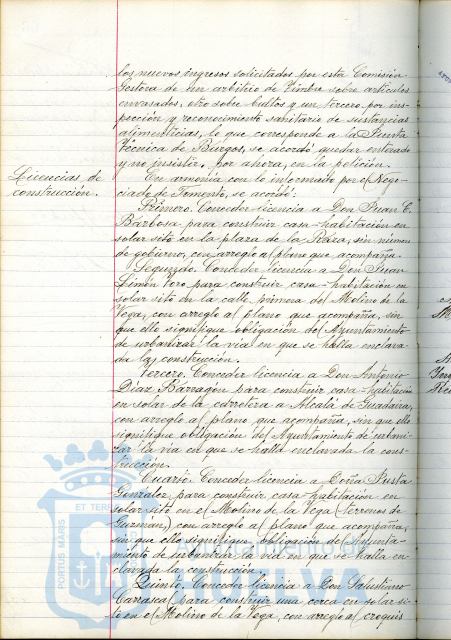 los nuevos ingresos solicitados por esta Comisión
Gestora de un arbitrio de timbre sobre artículos
envasados, otro sobre bultos y un tercero por ins-
pección y reconocimiento sanitario de sustancias
alimenticias, lo que corresponde a la Junta
Técnica de Burgos, se acordó quedar enterado
y no insistir, por ahora, en la petición.
Licencias de
construcción.
En armonía con lo informado por el Nego-
ciado de Fomento, se acordó:
Primero. Conceder licencia a Don Juan C.
Barbosa para construir casa-habitación en
solar sito en la plaza de la                 , sin número
de gobierno, con arreglo al plano que acompaña.
Segundo. Conceder licencia a Don Juan
Limón Toro para construir casa-habitación en
solar sito en la calle primera del Molino de la
Vega, con arreglo al plano que acompaña, sin
que ello signifique obligación del Ayuntamiento
de urbanizar la vía en que se halla enclava-
da la construcción.
Tercero. Conceder licencia a Don Antonio
Díaz Barragán para construir casa-habitación
en solar de la carretera a Alcalá de Guadaira,
con arreglo al plano que acompaña, sin que ello
signifique obligación del Ayuntamiento de urbani-
zar la vía en que se halla enclavada la cons-
trucción.
Cuarto. Conceder licencia a Doña Justa
González, para construir casa-habitación en
solar sito en el Molino de la Vega (terrenos de
Guzmán,) con arreglo al plano que acompaña,
sin que ello signifique obligación del Ayunta-
miento de urbanizar la vía en que se halla en-
clavada la construcción.
Quinto. Conceder licencia a Don Salustiano
Carrascal para construir una cerca en solar si-
to en el Molino de la Vega, con arreglo al croquis
PORTUS MARIS
ET TERRAE
Ayuntamiento de
HUELVA